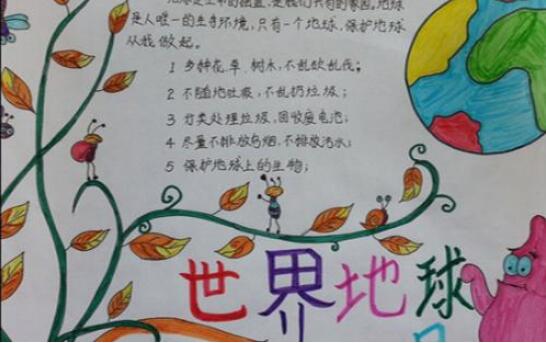 地球是生命的摇篮,是我们共有的家园。地球
是人唯一的生存环境,只有一个地球,保护地球
从我做起。
1 多种花、草、树木,不乱砍乱伐;
2 不随地吐痰,不乱扔垃圾;
3 分类处理垃圾,回收废电池;
4 尽量不排放乌烟,不排放污水;
5 保护地球上的生物;
世界地球